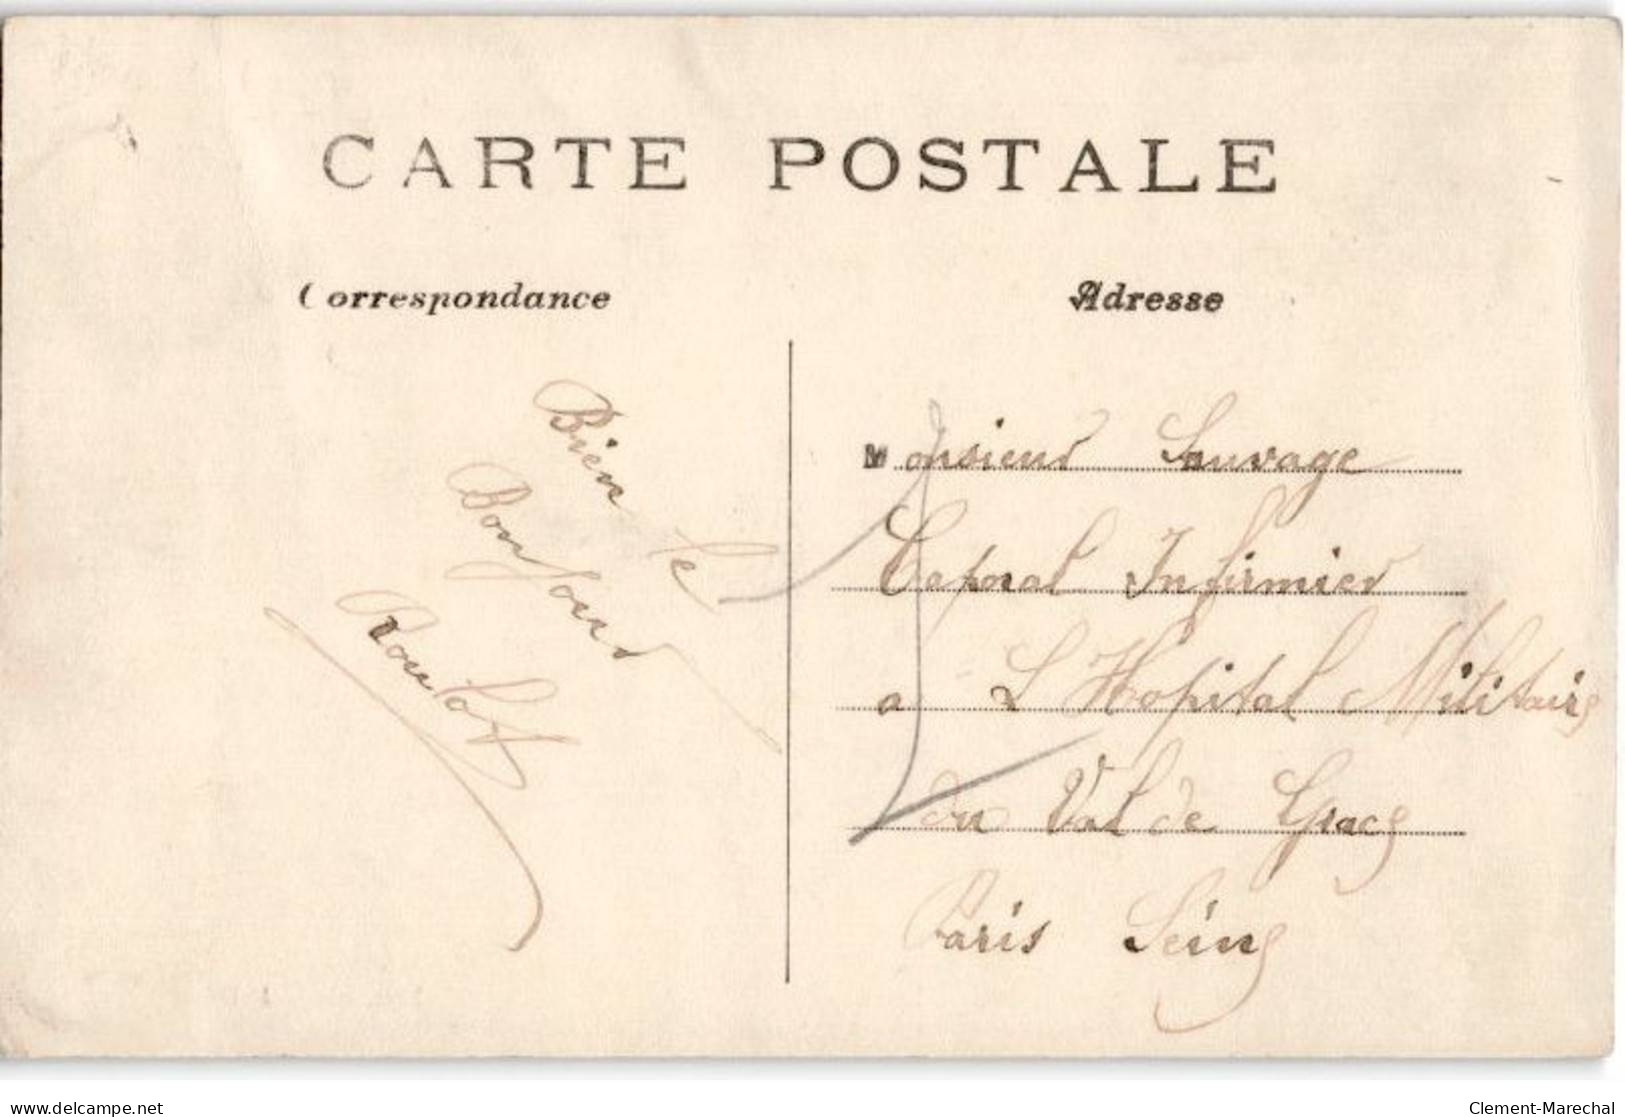 CARTE POSTALE
Correspondance
Adresse
Bien le
Bonjour
Roulot
Monsieur Sauvage
Caporal Infirmier
a L Hopital Militaire
du Val de Grace
Paris Seine
delcampe.net
Clement-Marechal